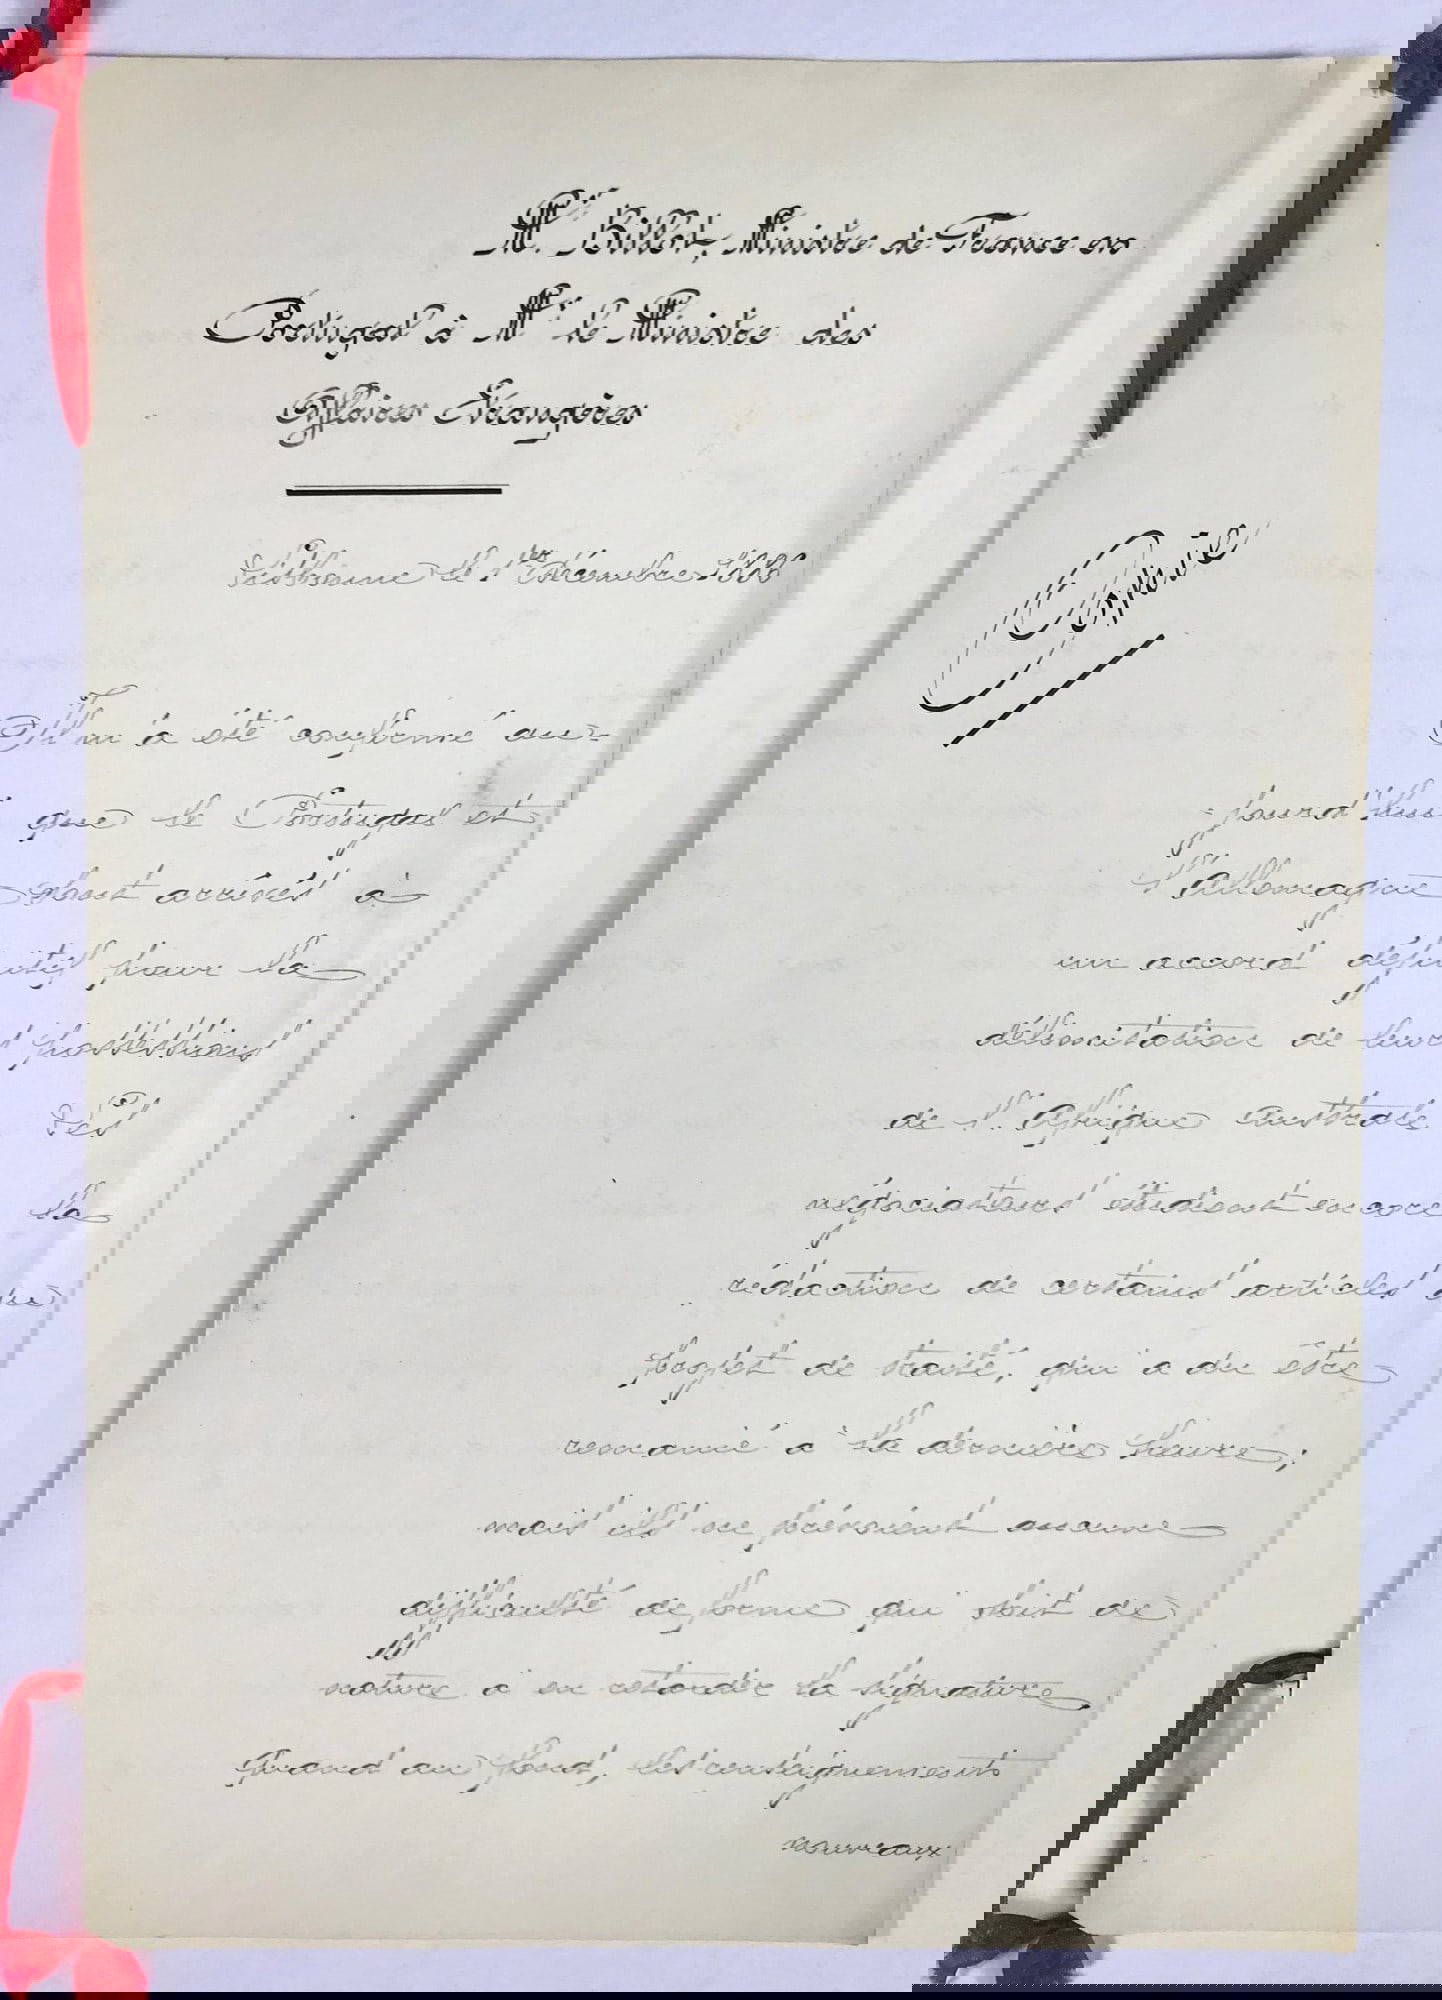 Mr. Billot, Ministre de France en
Portugal à Mr le Ministre des
Affaires Étrangères
Lisbonne le 1er Décembre 1886
Copie
Il m'a été confirmé au-
jourd'hui que le Portugal et
l'Allemagne sont arrivés à
un accord définitif pour la
délimitation de leurs possessions
de l'Afrique Australe. Les
négociateurs étudient encore la
rédaction de certains articles du
projet de traité, qui a du être
remanié à la dernière heure;
mais ils ne prévoient aucune
difficulté de forme qui soit de
nature à en retarder la signature
Quant au fond, les renseignements
nouveaux